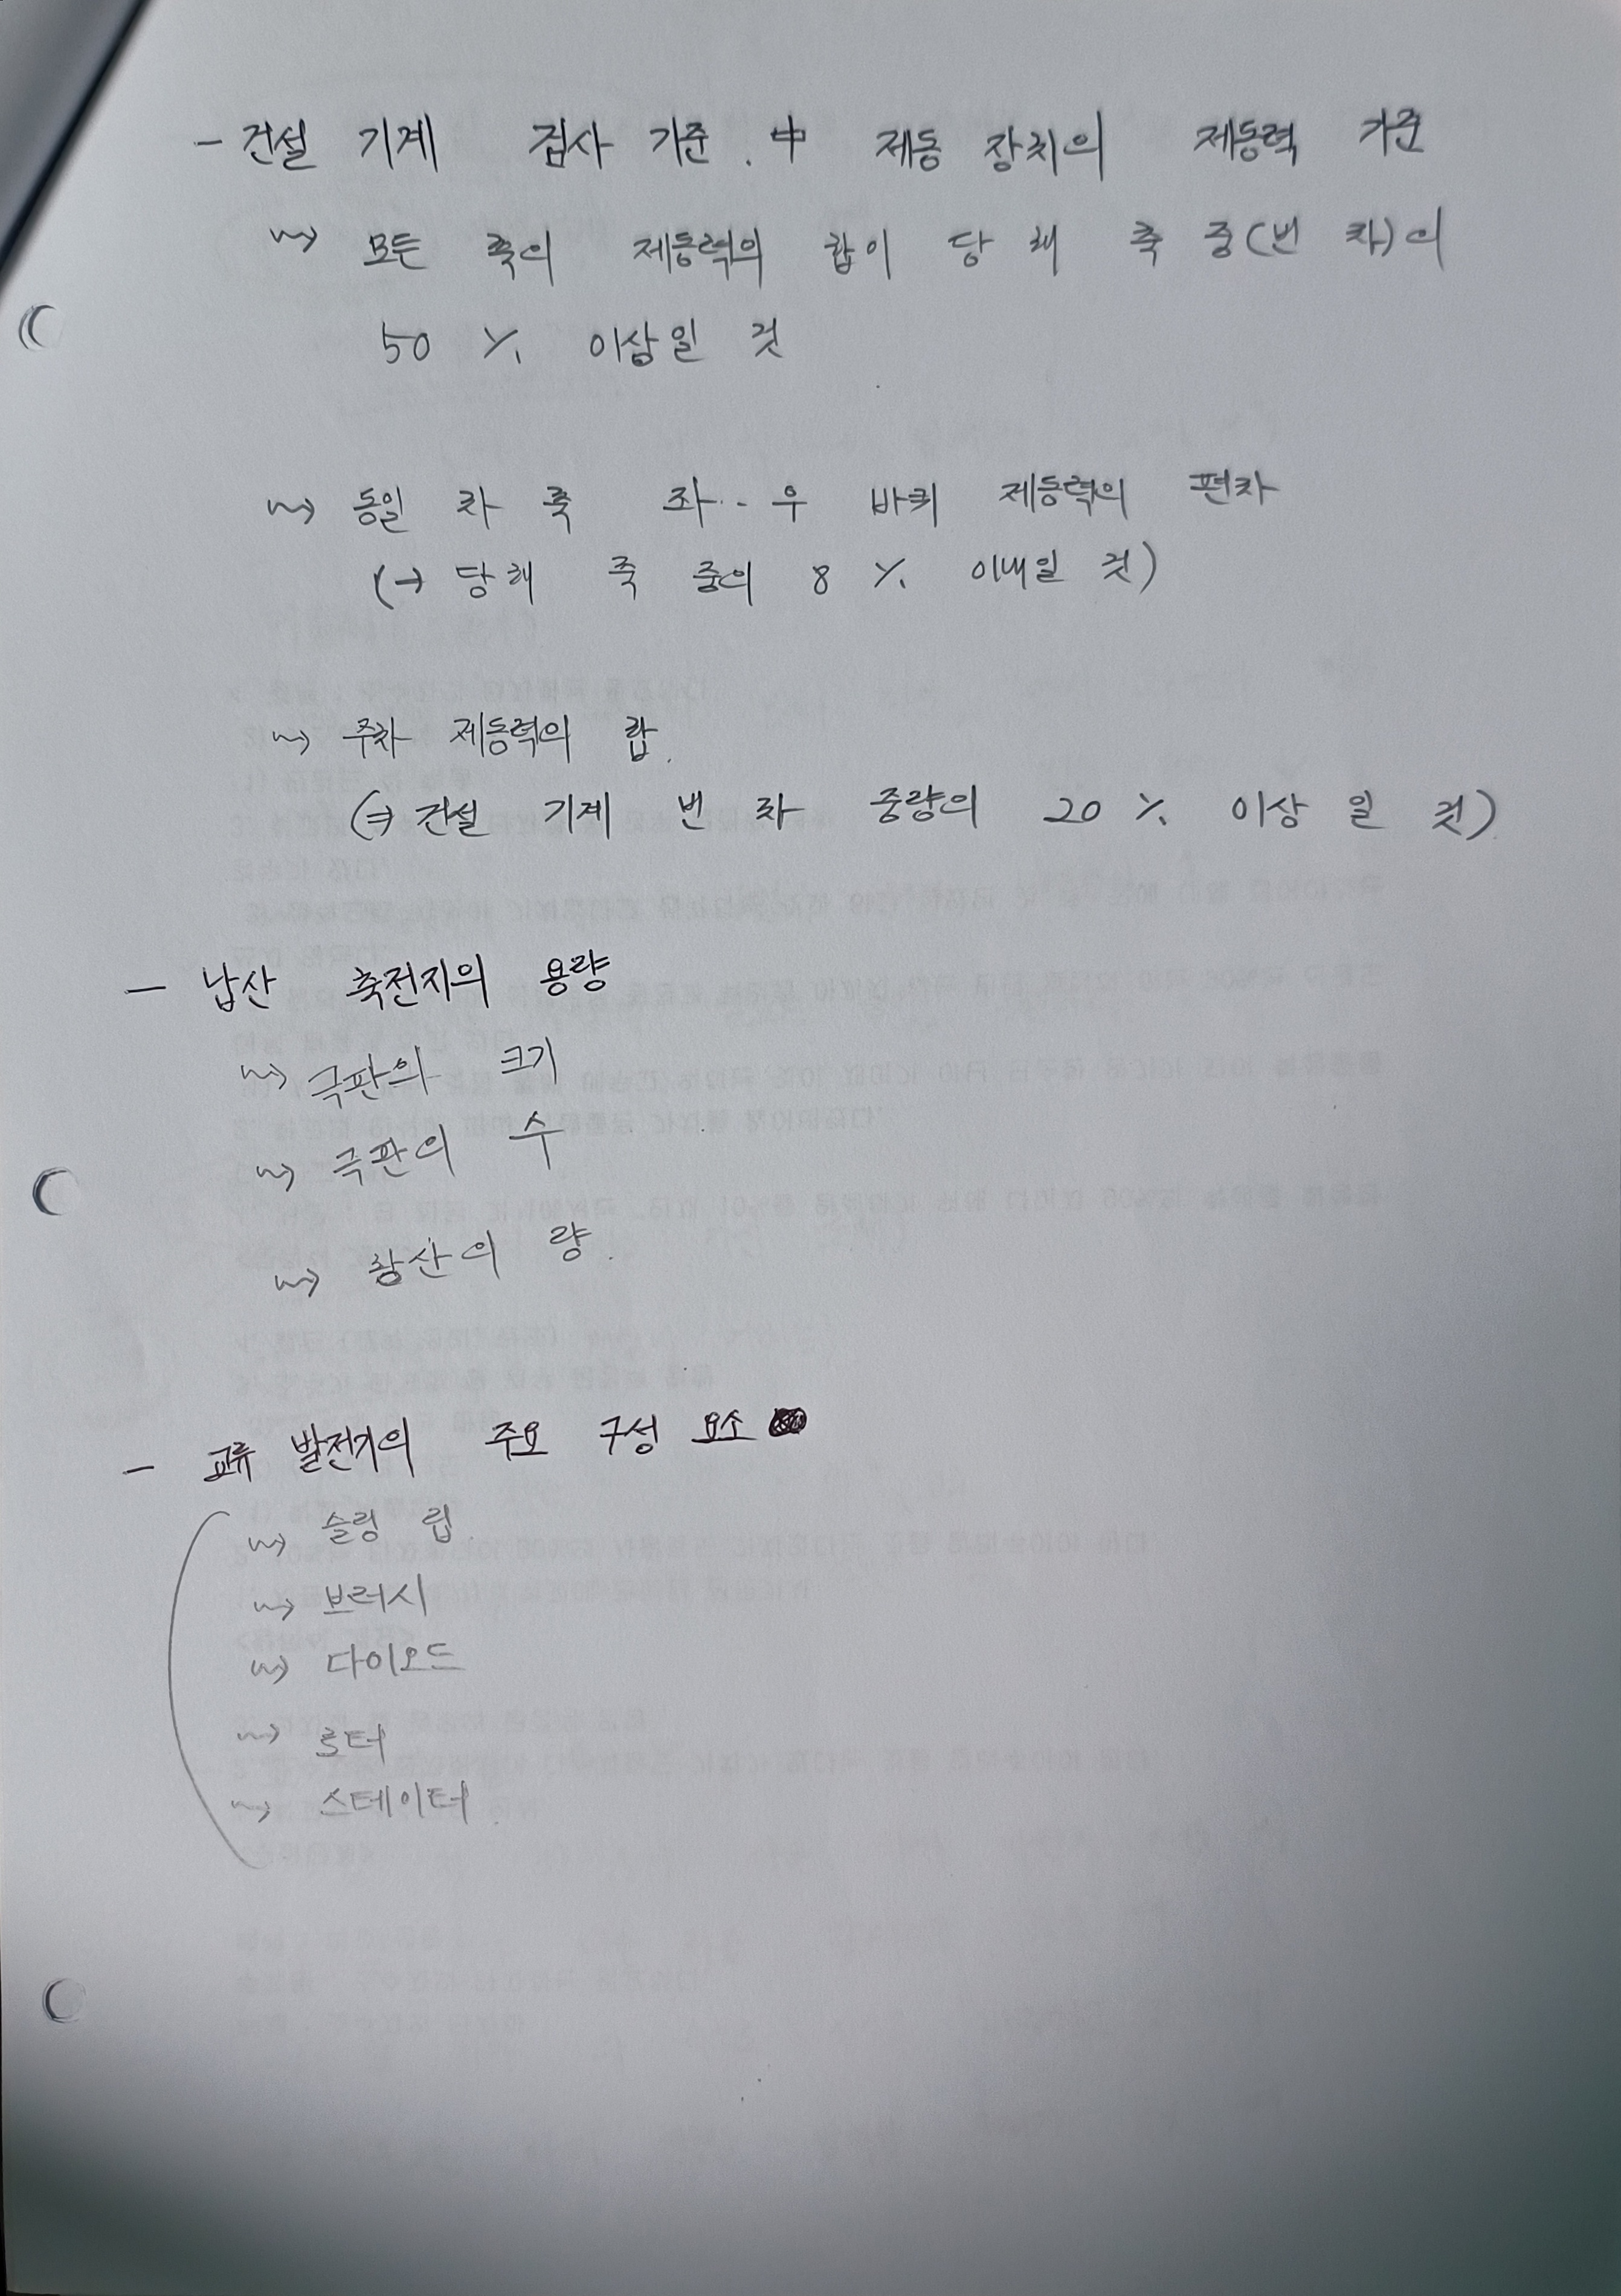 - 건설 기계 검사 기준. 中 제동 장치의 제동력 기준
↝ 모든 축의 제동력의 합이 당 해 축 중(빈 차)의
50 % 이상일 것
↝ 동일 차 축 좌·우 바퀴 제동력의 편차
(→ 당해 축 중의 8 % 이내일 것)
↝ 주차 제동력의 합.
(⇒ 건설 기계 빈 차 중량의 20 % 이상 일 것)
- 납산 축전지의 용량
↝ 극판의 크기
↝ 극판의 수
↝ 황산의 량.
- 교류 발전기의 주요 구성 요소
↝ 슬링 립.
↝ 브러시
↝ 다이오드
↝ 로터
↝ 스테이터.